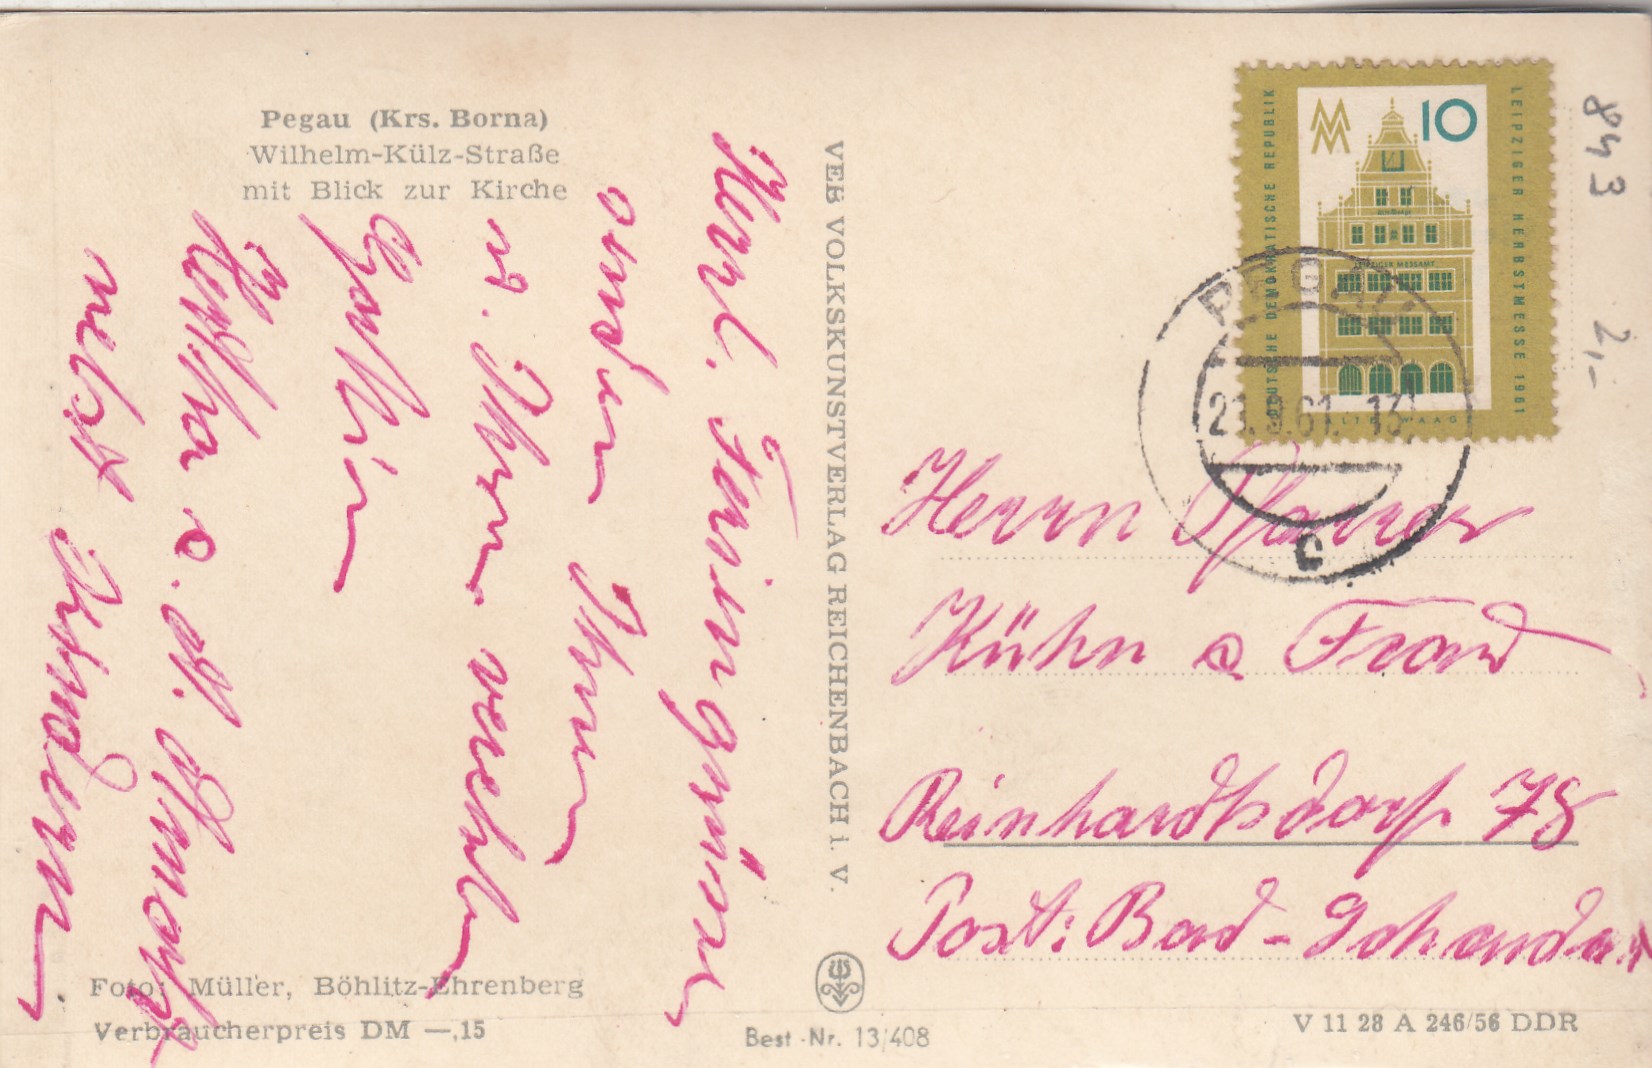 Pegau (Krs. Borna)
Wilhelm-Külz-Straße
mit Blick zur Kirche
Herzl. Feriengrüsse
senden Ihnen
u. Ihrer verehrten
Gattin
Käthe u. A.
nebst Kindern
Foto: Müller, Böhlitz-Ehrenberg
Verbraucherpreis DM —,15
VEB VOLKSKUNSTVERLAG REICHENBACH i. V.
Best.-Nr. 13/408
V 11 28 A 246/56 DDR
DEUTSCHE DEMOKRATISCHE REPUBLIK
10
LEIPZIGER MESSAMT
ALTE WAAGE
LEIPZIGER HERBSTMESSE 1961
PEGAU
.61.-13
c
843
2,-
Herrn Pfarrer
Kühn u Frau
Reinhardtsdorf 78
Post: Bad-Schandau